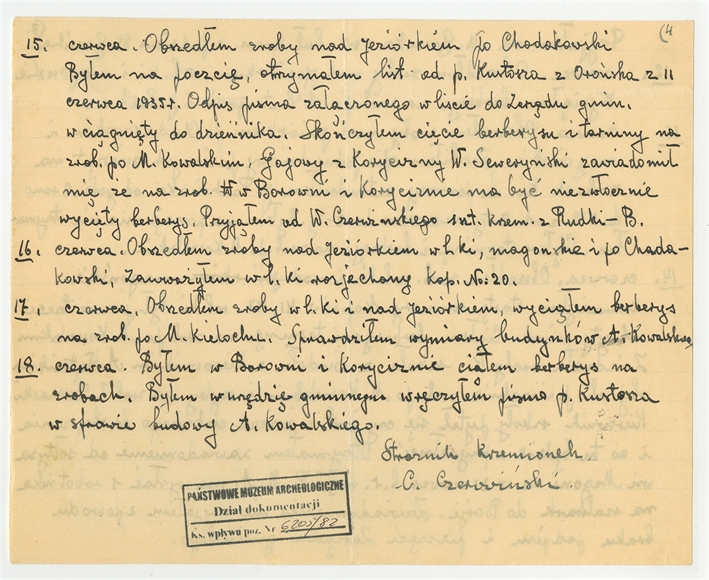 (4
15. czerwca. Obszedłem zroby nad Jeziórkiem po Chadakowski
Byłem na poczcię, otrzymałem list od p. Kustosza z Orońska z 11
czerwca 1935r. Odpis pisma załączonego w liście do Zarządu gmin.
wciągnięty do dziennika. Skończyłem cięcie berberysu i tarniny na
zrob. po M. Kowalskim. Gajowy z Korycizny W. Seweryński zawiadomił
mię że na zrob. w Borowni i Koryciznie ma być niezwłocznie
wycięty berberys. Przyjąłem od W. Czerwinskiego szt. krem. z Rudki-B.
16. czerwca. Obszedłem zroby nad Jeziórkiem wł.ki, magońskie i po Chada-
kowski, Zauważyłem wł.ki rozjechany kop. №: 20.
17. czerwca. Obszedłem zroby wł.ki i nad Jeziórkiem, wyciąłem berberys
na zrob. po M. Kielochu. Sprawdziłem wymiary budynków A. Kowalskieg
18. czerwca. Byłem w Borowni i Koryciznie ciąłem berberys na
zrobach. Byłem w urzędzię gminnem wręczyłem pismo p. Kustosza
w sprawie budowy A. Kowalskiego.
Strażnik kremionek.
C. Czerwiński.
PAŃSTWOWE MUZEUM ARCHEOLOGICZNE
Dział dokumentacji
Ks. wpływu poz. Nr 6200/82